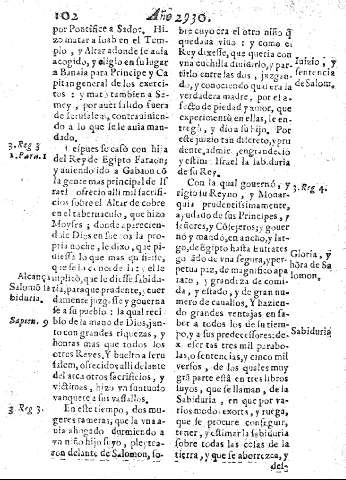 102
Año 2930.
por Pontifice a Sadoc. Hi-
zo matar a Ioab en el Tem-
plo, y Altar adonde se auia
acogido, y eligio en su lugar
a Banaia para Principe y Ca
pitan general de los exerci-
tos: y matò tambien a Se-
mey, por auer salido fuera
de Ierusalem, contrauinien-
do a lo que se le auia man-
dado.
3. Reg 3
2. Para. 1
Despues se casò con hija
del Rey de Egipto Faraon;
y auiendo ido a Gabaon cõ
la gente mas principal de Is
rael ofrecio alli mil sacrifi-
cios sobre el Altar de cobre
en el tabernaculo, que hizo
Moyses; donde aparecien-
dole Dios en sueños la pro-
pria noche, le dixo, que pi-
diesse lo que mas quisiesse,
que se lo concederia; el le
Alcançò
Salomõ la
sabiduria.
suplicò, que le diesse sabidu-
ria, para que prudente, cuer
damente juzgasse y governa
se a su pueblo: la qual reci
Sapien. 9
bio de la mano de Dios, jun
to con grandes riquezas, y
honras mas que todos los
otros Reyes. Y buelto a Ieru
salem, ofrecido alli delante
del arca otros sacrificios, y
victimas, hizo vn suntuoso
vanquete a sus vassallos.
3 Reg 3.
En este tiempo, dos mu-
geres rameras, que la vna a-
uia ahogado durmiendo a
vn niño hijo suyo, pleytea-
ron delante de Salomon, so-
bre cuyo era el otro niño q̃
quedaua viuo: y como el
Rey dixesse, que queria con
vna cuchilla diuidirlo, y par-
tirlo entre las dos, juzgan-
do, y conociendo qual era la
verdadera madre, por el a-
fecto de piedad y amor, que
experimentò en ellas, le en-
tregò, y dio a su hijo. Por
este juizio tan discreto, y pru
dente, admirò, engrandeciò
y estimò Israel la sabiduria
de su Rey.
Iuizio, y
sentencia
de Salom.
Con la qual gouernò, y
rigio su Reyno, y Monar-
quia prudentissimamente,
ayudado de sus Principes, y
señores, y Cõsejeros; y gouer
nò y mandò, en ancho, y lar-
go, de Egipto hasta Eufrates
gozãdo de vna segura, y per-
petua paz, de magnifico apa
rato, y grandeza de comi-
da, y estado, y de gran nu-
mero de cauallos. Y hazien-
do grandes ventajas en sa-
ber a todos los de su tiem-
po, y a sus predecessores: de-
xò escritas tres mil parabo-
las, o sentencias, y cinco mil
versos, de las quales muy
grã parte està en tres libros
suyos, que se llaman, de la
Sabiduria, en que por va-
rios modos exorta, y ruega,
que se procure conseguir,
tener, y estimar la sabiduria
sobre todas las cosas de la
tierra, y que se aborrezca, y
3. Reg 4.
Gloria, y
hõra de Sa
lomon.
Sabiduria
dela